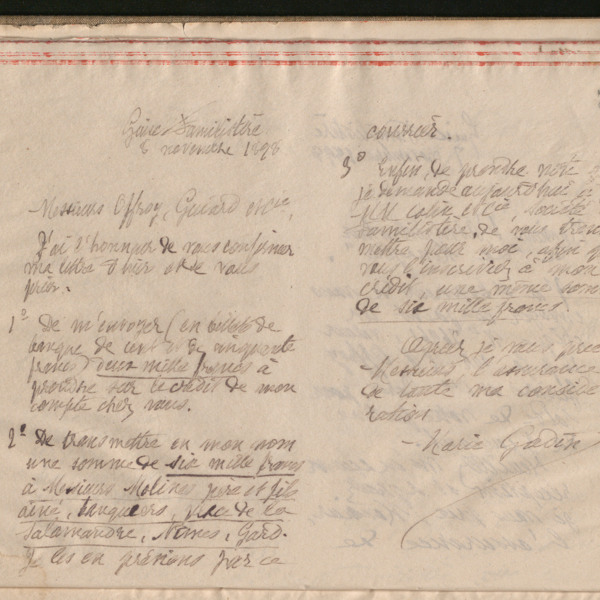 Guise Familistère
8 novembre 1898
Messieurs Offroy, Guiard et Cie,
J'ai l'honneur de vous confirmer
ma lettre d'hier et de vous
prier.
1º De m'envoyer (en billets de
banque de cent et de cinquante
francs) deux mille francs à
prendre sur le crédit de mon
compte chez vous.
2º De transmettre en mon nom
une somme de six mille francs
à Messieurs Molines père et fils
aîné, banquiers, place de la
Salamandre, Nîmes, Gard.
Je les en préviens par ce
courrier.
3º Enfin, de prendre note
je demande aujourd'hui à
MM Colin et Cie, Société
Familistère, de vous trans
mettre pour moi, afin q
vous l'inscriviez à mon
crédit, une même som
de six mille francs
Agréez je vous prie
Messieurs, l'assurance
de toute ma considé
ration
Marie Godin